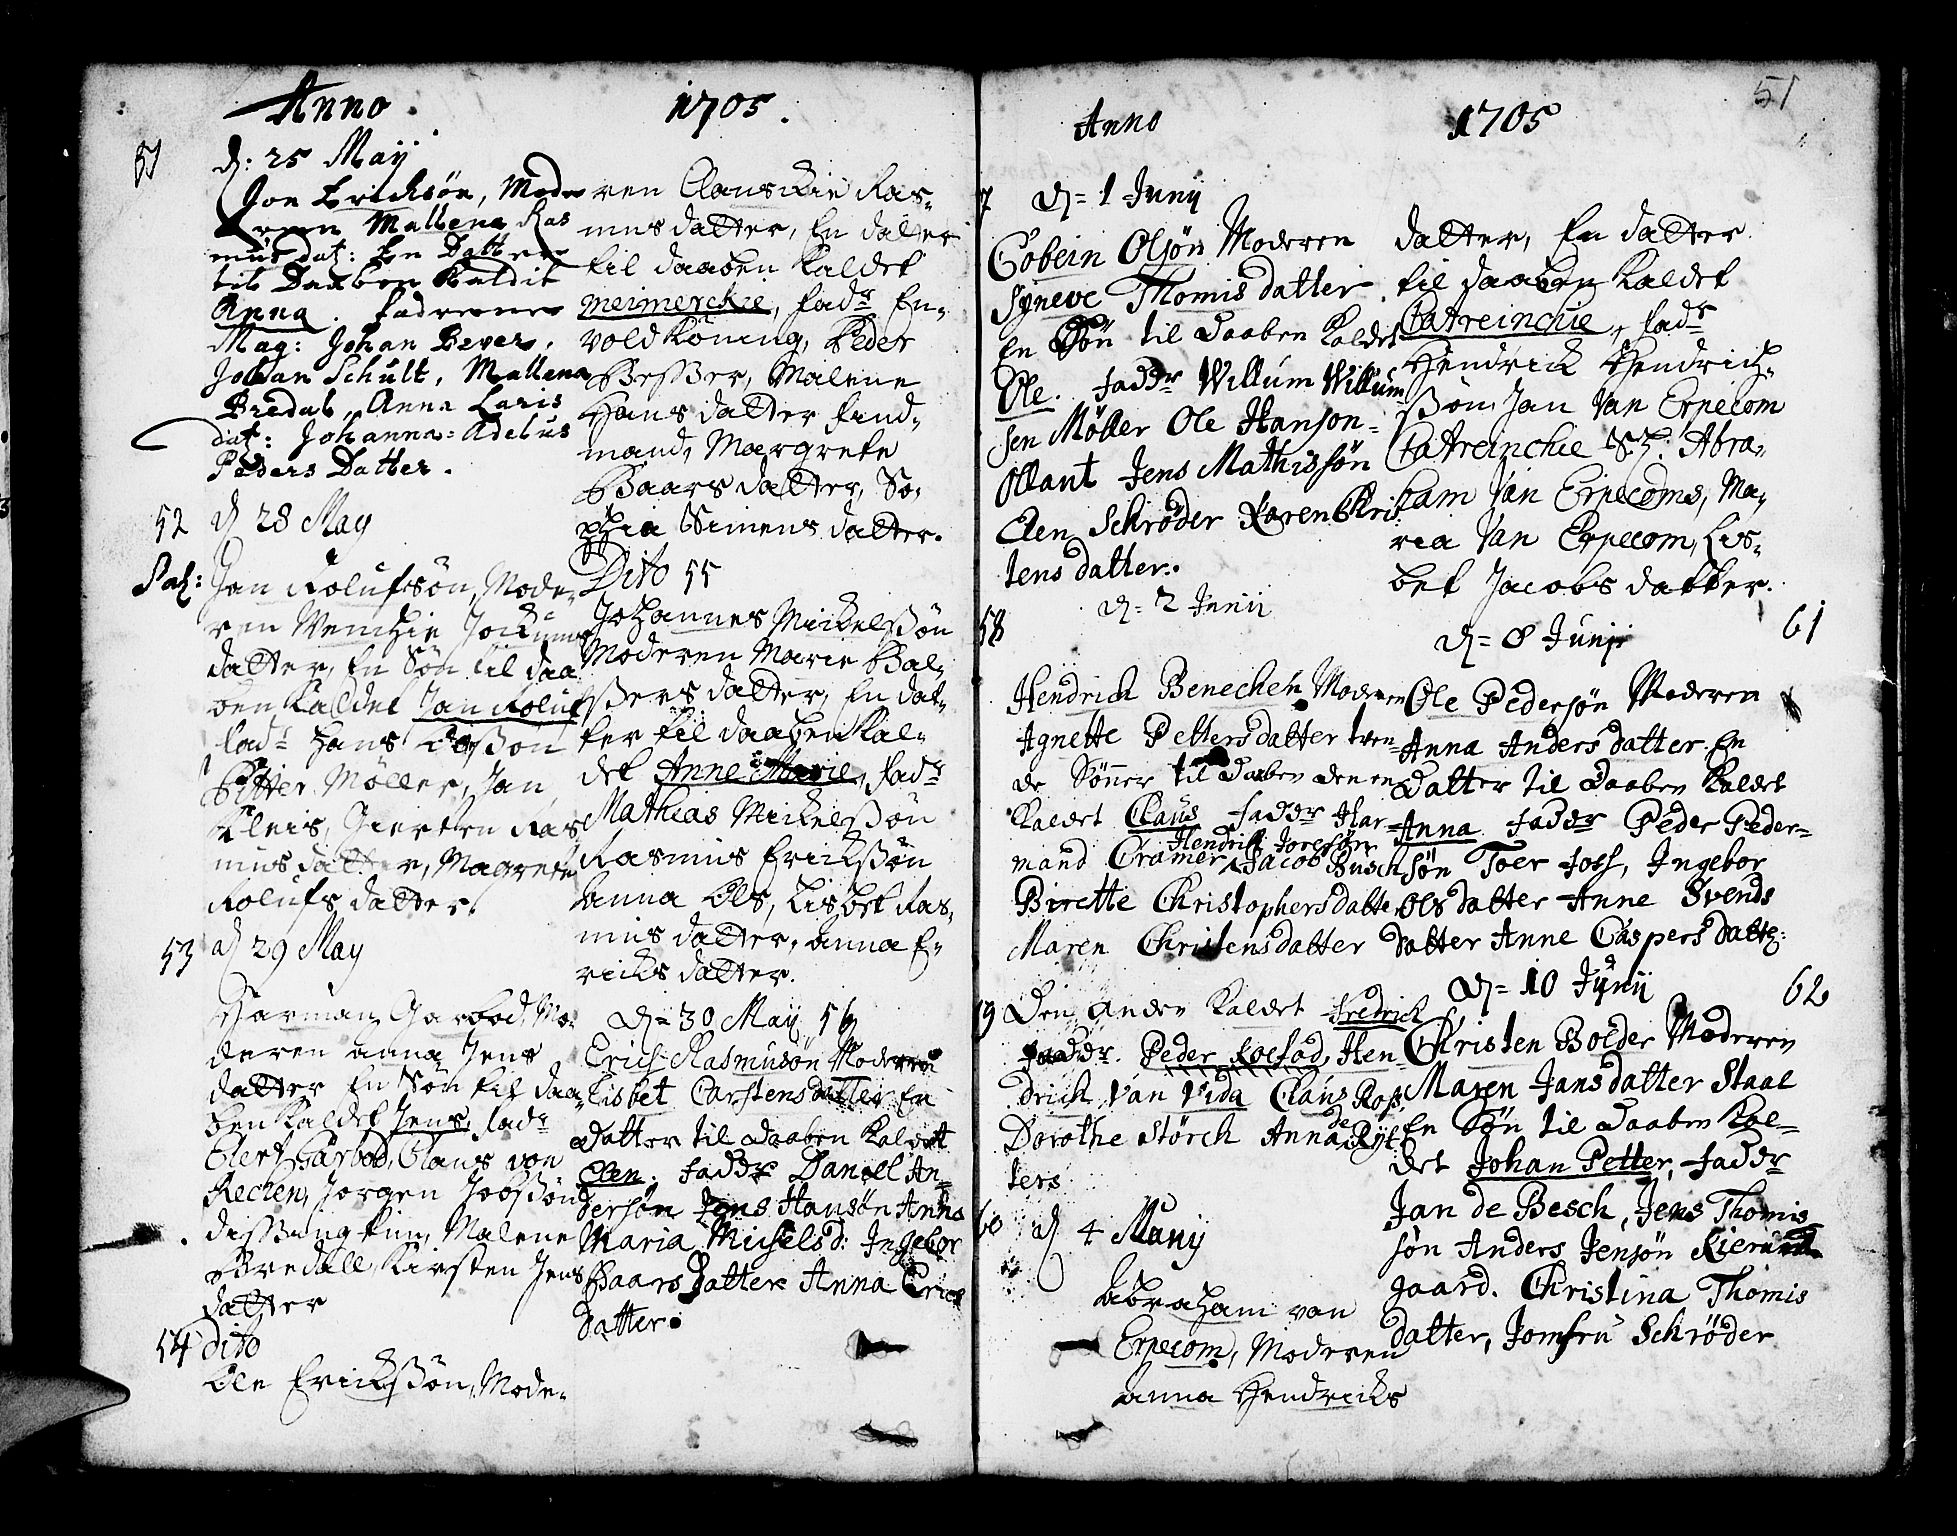 Anno 1705.
51
d: 25 May
Jon Erichsøn, Mode
ren Mallena Ras
mus dat: En Datter
til Daaben Kaldit
Anna. Fadrerne
Mag: Johan Bever,
Johan Schult, Mallena
Bredal, Anna Laris
dat: Johanna Adelus
Peders Datter.
52 d 28 May
Jan Rolufsøn, Mode-
ren Wenchie Jochums
datter, En Søn til daa
ben kaldet Jan Roluf
fadr Hans
Pitter Møller, Jan
Kleis, Giertren Ras
musdatter, Magrete
Rolufs datter.
53 d 29 May
Harman Garbod, Mo-
deren Anna Jens
datter En Søn til daa
ben kaldet Jens, fadr
Clert Garbod, Claus von
Rechen, Jorgen Jobssøn
Malene
Bredall, Kirsten Jens
datter
54 dito
Ole Erickssøn, Mode-
ren Clanschie Ras-
mus datter, En datter
til daaben kaldet
Meimerchie, fadr En-
vold Køning, Peder
Besser, Malene
Hans datter find-
mand, Margrete
Baars datter, So-
phia Simens datter.
Dito 55
Johannes Mickelssøn
Moderen Marie Bal-
tzers datter, En dat-
ter til daaben kal-
det Anne Marie, fadr
Mathias Mickelssøn
Rasmus Erickssøn
Anna Ols, Lisbet Ras-
mus datter, Anna E-
ricks datter.
d= 30 May 56
Erich Rasmusøn Moderen
Lisbet Carstensdatter En
datter til daaben kaldet
Elen. faddr Daniel An-
dersøn Jens Hansøn Anna
Maria Michelsd: Ingebor
Baars datter Anna Erichs
datter.
Anno 1705
51
7 d= 1 Junij
Gobein Olsøn Moderen
Syneve Thomisdatter
En Søn til daaben kaldet
Ole. faddr Willum Willum
sen Møller Ole Hanson-
Ollant Jens Mathissøn
Elen Schrøder Karen Chris
tens datter.
58 d= 2 Junij
Hendrich Benechen Moderen
Agnette Pettersdatter tven-
de Sønner til daaben den en
kaldet Claus faddr Har
Hendrik Joresøn
mand Cramer Jacob Busch
Birette Christophersdatte
Maren Christensdatter
19 Den anden kaldet Fredrich
faddr. Peder Foefod, Hen-
drich Van Vida Claus Ross
Dorothe Størch Anna de Ryt
ters
60 d 4 Munij
Abraham van
Erpecom, Moderen
Anna Hendrichs
datter, En datter
til daaben kaldet
Catreinchie, fadr
Hendrick Hendrich-
søn, Jan Van Erpecom
Catreinchie Sl: Abra-
ham Van Erpecoms, Ma-
ria Van Erpecom, Lis-
bet Jacobs datter.
d= 8 Junij 61
Ole Pedersøn Moderen
Anna Andersdatter En
datter til daaben kaldet
Anna faddr Peder Peder-
søn Toer Joss, Ingebor
Olsdatter Anne Svends
datter Anne Caspersdattr:
d= 10 Junij 62
Christen Bolder Moderen
Maren Jansdatter Staal
En Søn til daaben kal-
det Johan Petter, faddr
Jan de Besch, Jens Thomis
søn Anders Jensøn
gaard. Christina Thomis
datter, Jomfru Schrøder